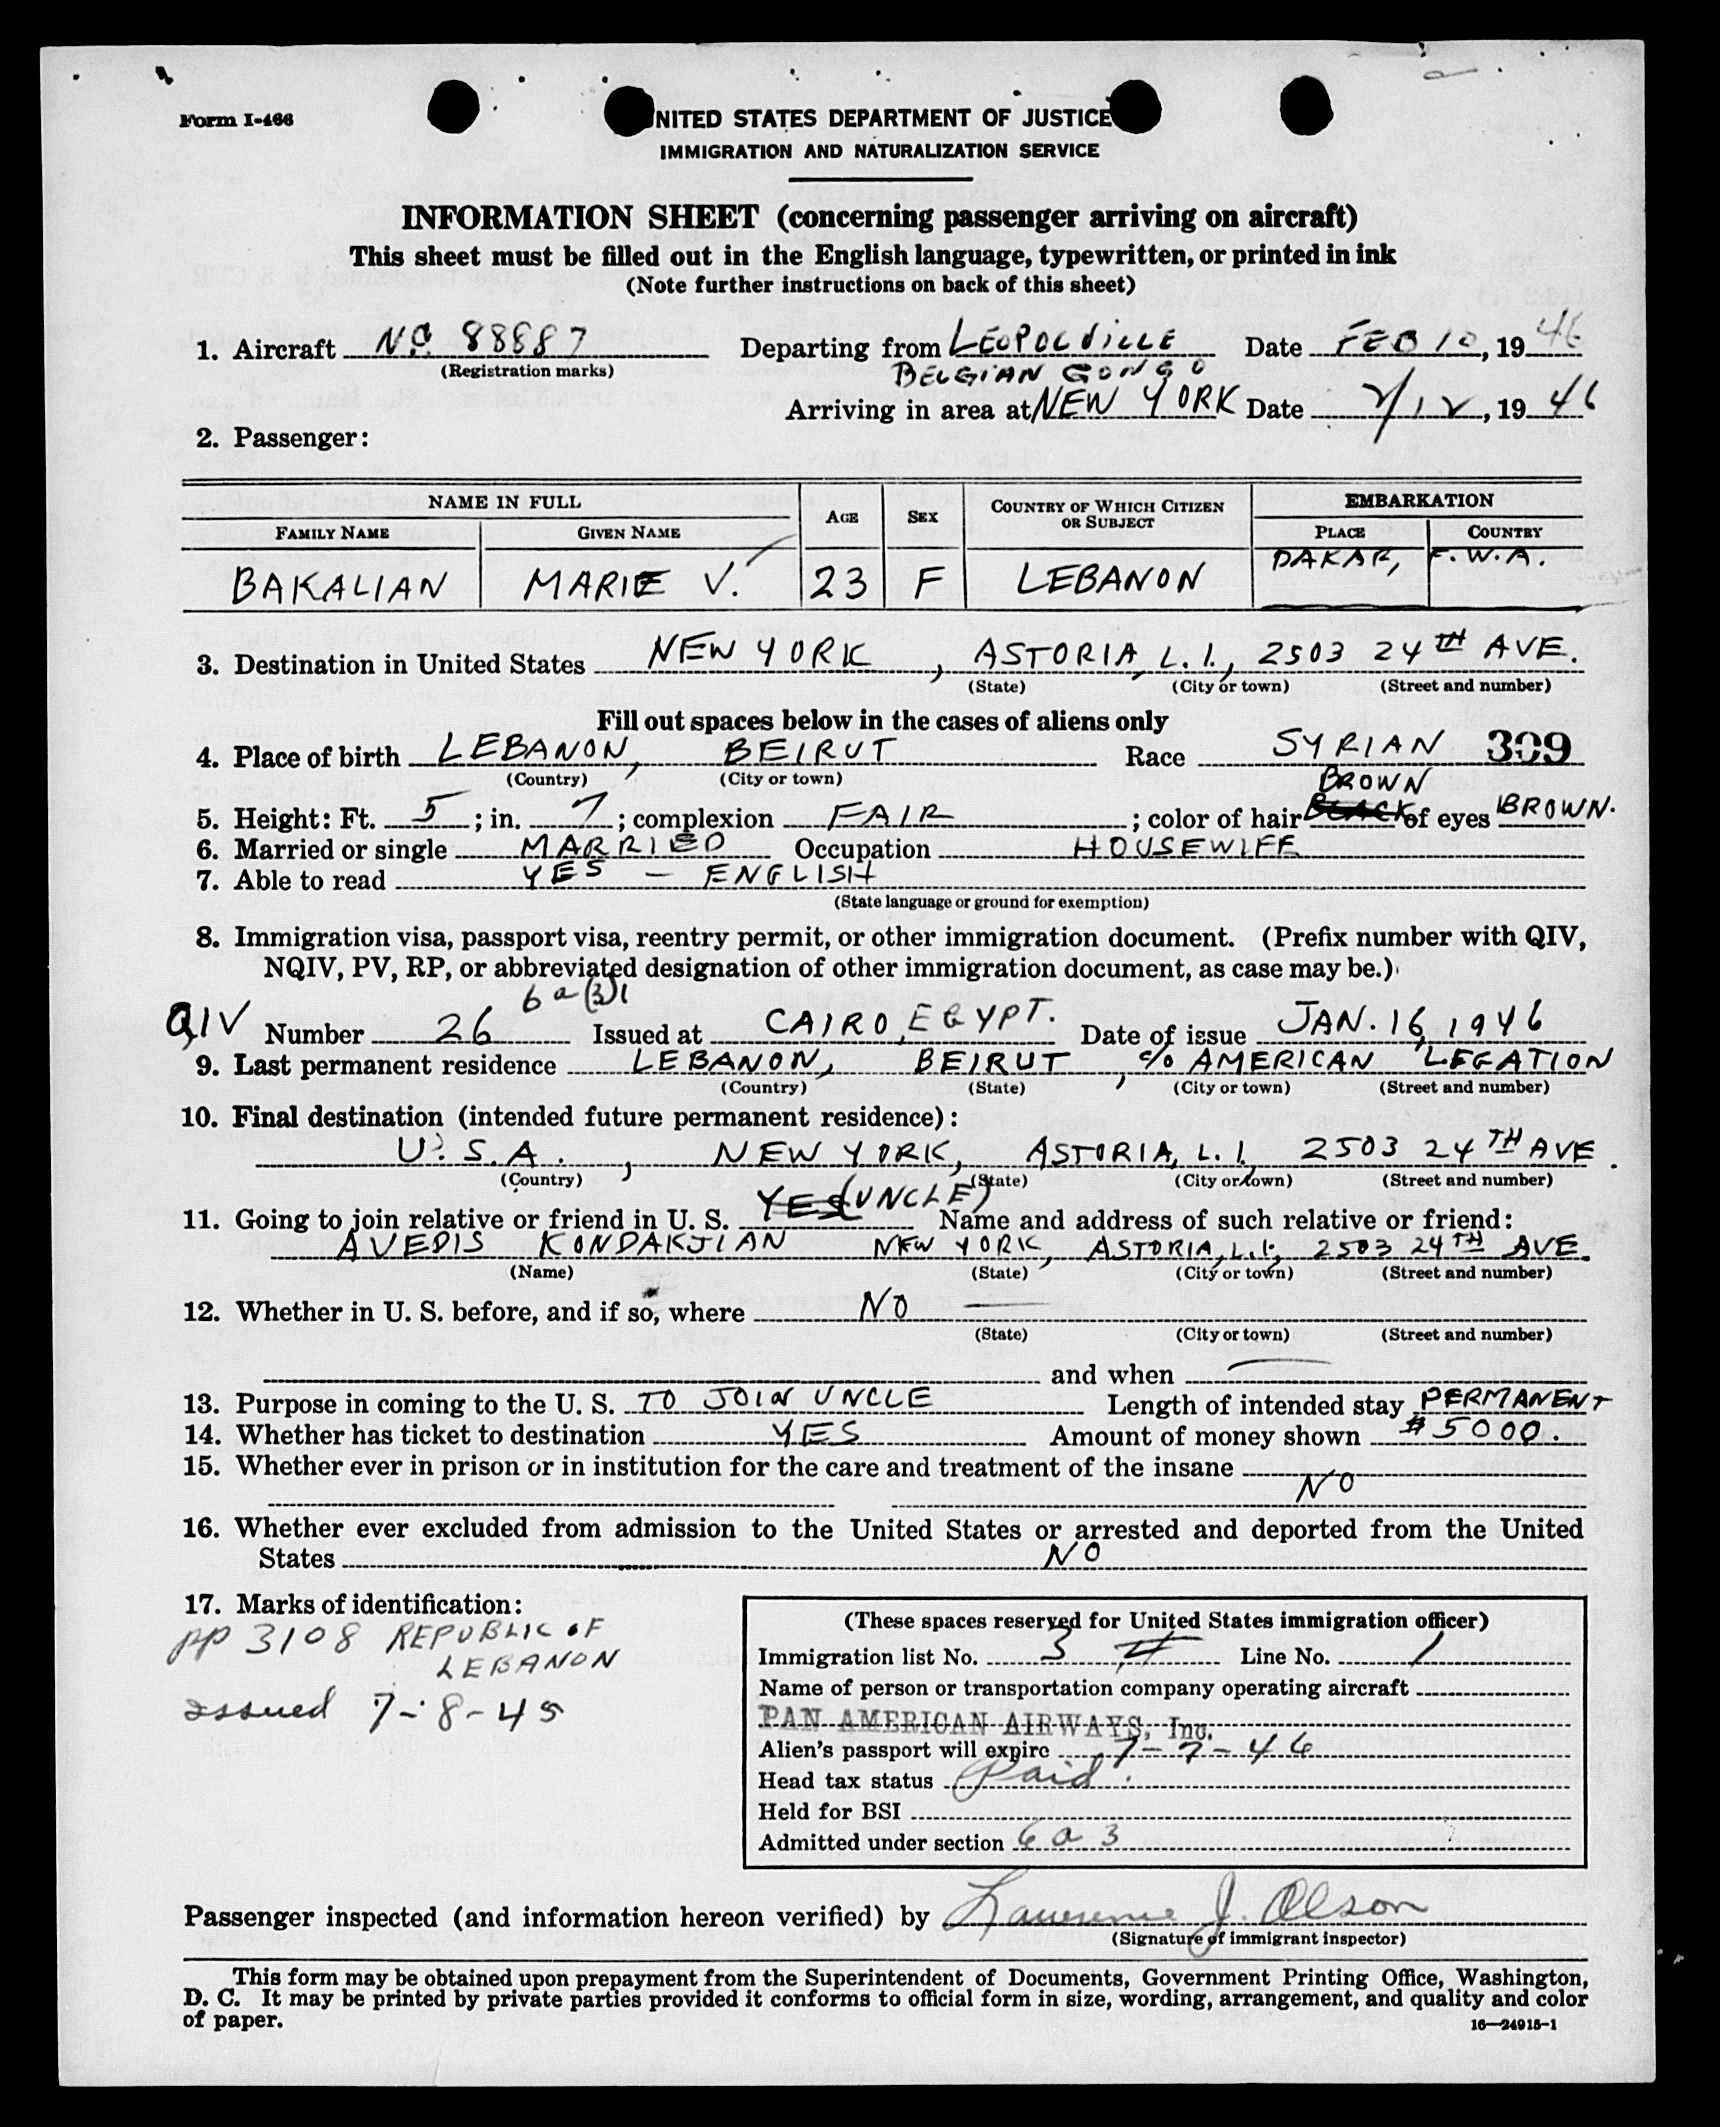 Form I-466
UNITED STATES DEPARTMENT OF JUSTICE
IMMIGRATION AND NATURALIZATION SERVICE
INFORMATION SHEET (concerning passenger arriving on aircraft)
This sheet must be filled out in the English language, typewritten, or printed in ink
(Note further instructions on back of this sheet)
1. Aircraft NC. 88887 Departing from LEOPOLDVILLE Date FEB 10, 1946
(Registration marks) BELGIAN CONGO
Arriving in area at NEW YORK Date 2/12, 1946
2. Passenger:
NAME IN FULL AGE SEX COUNTRY OF WHICH CITIZEN OR SUBJECT EMBARKATION
FAMILY NAME GIVEN NAME PLACE COUNTRY
BAKALIAN MARIE V. 23 F LEBANON DAKAR, F.W.A.
3. Destination in United States NEW YORK, ASTORIA, L.I., 2503 24TH AVE.
(State) (City or town) (Street and number)
Fill out spaces below in the cases of aliens only
4. Place of birth LEBANON, BEIRUT Race SYRIAN 309
(Country) (City or town)
5. Height: Ft. 5; in. 7; complexion FAIR; color of hair BLACK BROWN of eyes BROWN.
6. Married or single MARRIED Occupation HOUSEWIFE
7. Able to read YES - ENGLISH
(State language or ground for exemption)
8. Immigration visa, passport visa, reentry permit, or other immigration document. (Prefix number with QIV,
NQIV, PV, RP, or abbreviated designation of other immigration document, as case may be.)
6a(3)1
QIV Number 26 Issued at CAIRO, EGYPT. Date of issue JAN. 16, 1946
9. Last permanent residence LEBANON, BEIRUT, c/o AMERICAN LEGATION
(Country) (State) (City or town) (Street and number)
10. Final destination (intended future permanent residence):
U.S.A., NEW YORK, ASTORIA, L.I. 2503 24TH AVE.
(Country) (State) (City or town) (Street and number)
11. Going to join relative or friend in U. S. YES (UNCLE) Name and address of such relative or friend:
AVEDIS KONDAKJIAN NEW YORK, ASTORIA, L.I., 2503 24TH AVE.
(Name) (State) (City or town) (Street and number)
12. Whether in U. S. before, and if so, where NO —
(State) (City or town) (Street and number)
and when —
13. Purpose in coming to the U. S. TO JOIN UNCLE Length of intended stay PERMANENT
14. Whether has ticket to destination YES Amount of money shown $5000.
15. Whether ever in prison or in institution for the care and treatment of the insane
NO
16. Whether ever excluded from admission to the United States or arrested and deported from the United
States NO
17. Marks of identification:
PP 3108 REPUBLIC OF
LEBANON
issued 7-8-45
(These spaces reserved for United States immigration officer)
Immigration list No. 3 Line No. 1
Name of person or transportation company operating aircraft
PAN AMERICAN AIRWAYS, Inc.
Alien's passport will expire 7-7-46
Head tax status Paid.
Held for BSI
Admitted under section 6a3
Passenger inspected (and information hereon verified) by Lawrence J. Olson
(Signature of immigrant inspector)
This form may be obtained upon prepayment from the Superintendent of Documents, Government Printing Office, Washington,
D. C. It may be printed by private parties provided it conforms to official form in size, wording, arrangement, and quality and color
of paper.
16—24915-1